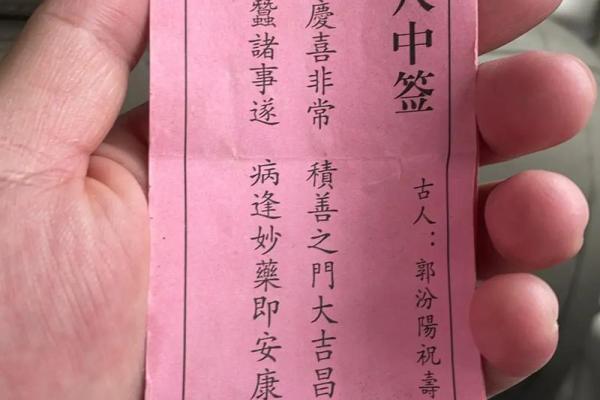 中签
古人：郭汾陽祝壽
慶喜非常 積善之門大吉昌
蠶諸事遂 病逢妙藥即安康